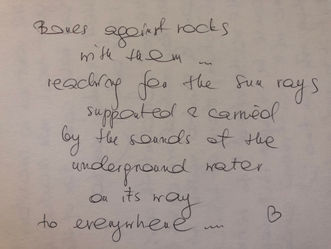 Bones against rocks
with them ...
reaching for the sun rays
supported & carried
by the sounds of the
underground water
on its way
to everywhere ....